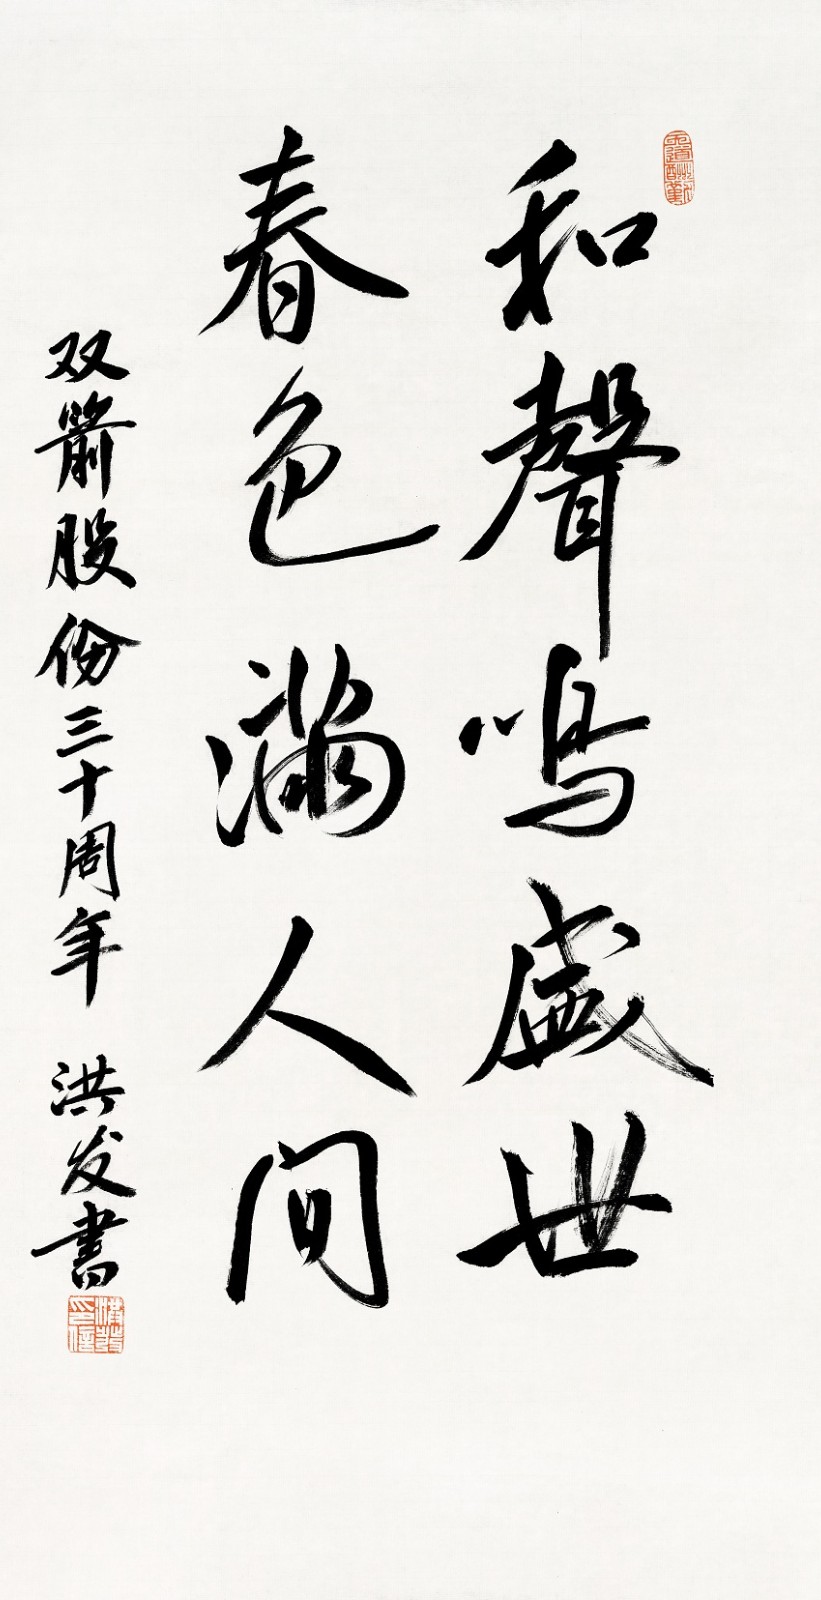 和聲鳴盛世
春色滿人间
双箭股份三十周年 洪发書
天道酬勤